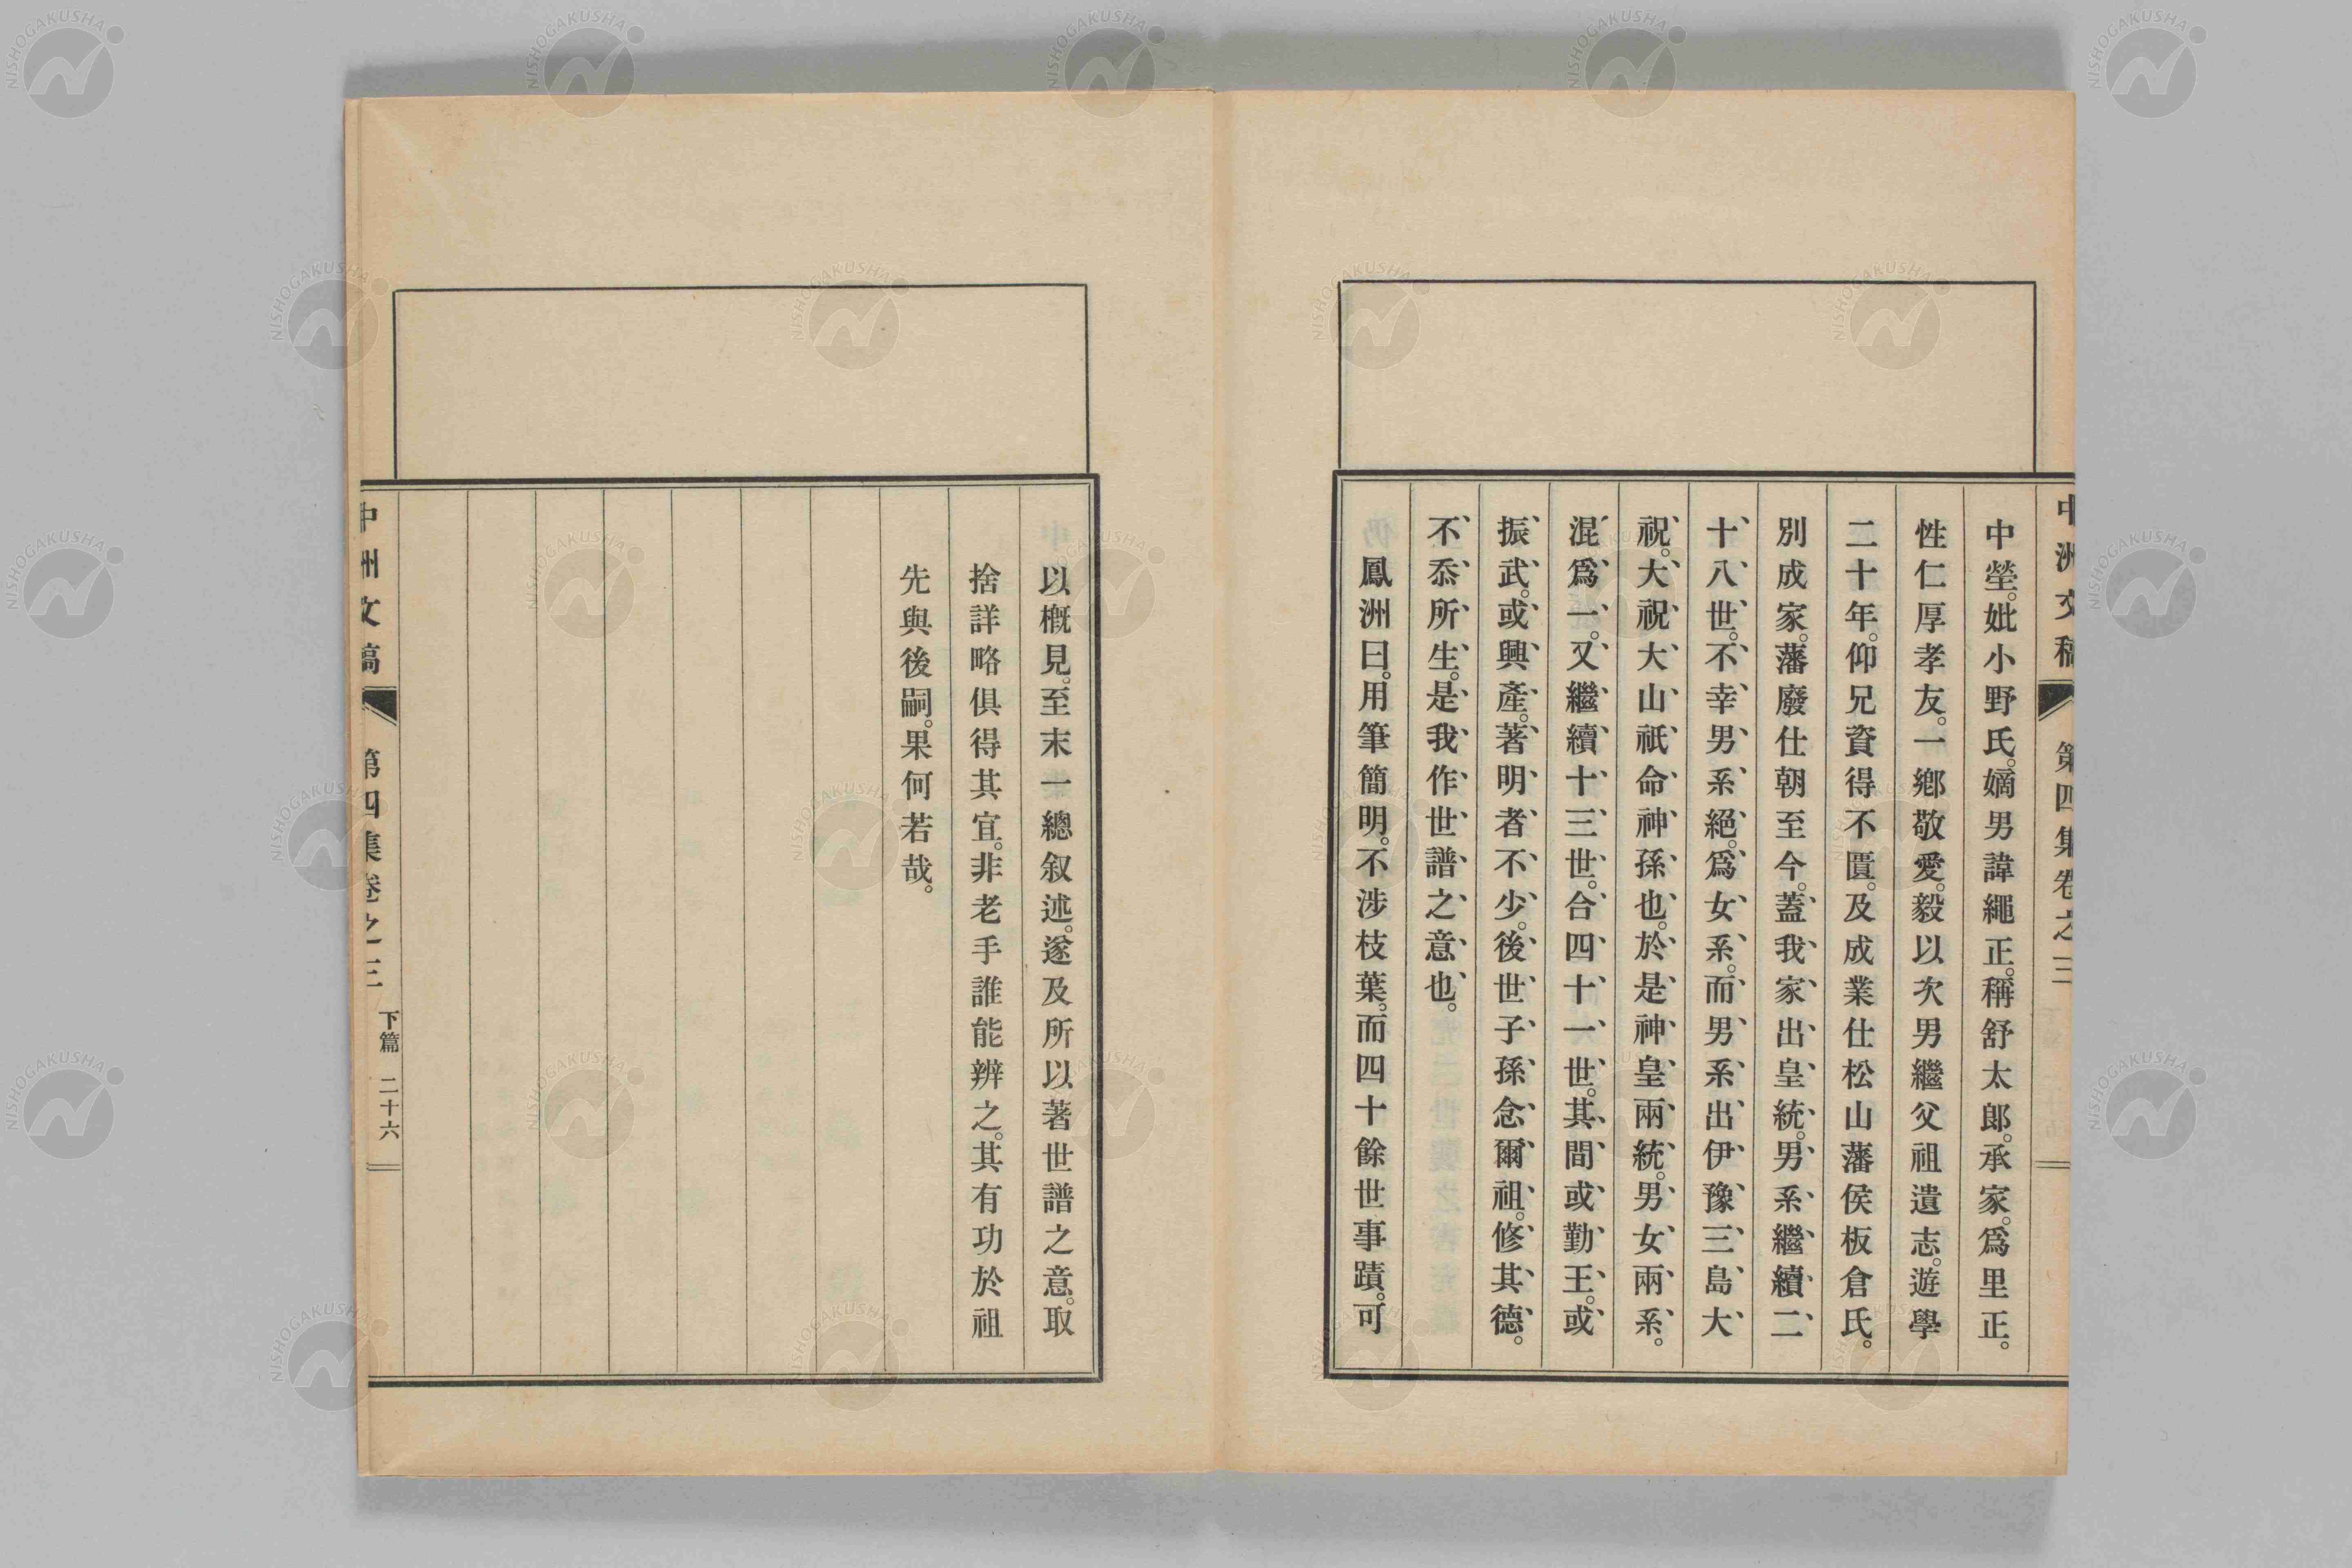 中洲文稿 第四集卷之三
中塋。妣小野氏。嫡男諱繩正。稱舒太郎。承家。爲里正。
性仁厚孝友。一鄕敬愛。毅以次男繼父祖遺志。遊學
二十年。仰兄資得不匱。及成業仕松山藩侯板倉氏。
別成家。藩廢仕朝至今。蓋我家出皇統。男系繼續二
十八世。不幸男系絕。爲女系。而男系出伊豫三島大
祝。大祝大山祇命神孫也。於是神皇兩統。男女兩系。
混爲一。又繼續十三世。合四十一世。其間或勤王。或
振武。或興產。著明者不少。後世子孫念爾祖。修其德。
不忝所生。是我作世譜之意也。
鳳洲曰。用筆簡明。不涉枝葉。而四十餘世事蹟。可
以概見。至末一總叙述。遂及所以著世譜之意。取
捨詳略俱得其宜。非老手誰能辨之。其有功於祖
先與後嗣。果何若哉。
中洲文稿 第四集卷之三 下篇 二十六
NISHOGAKUSHA